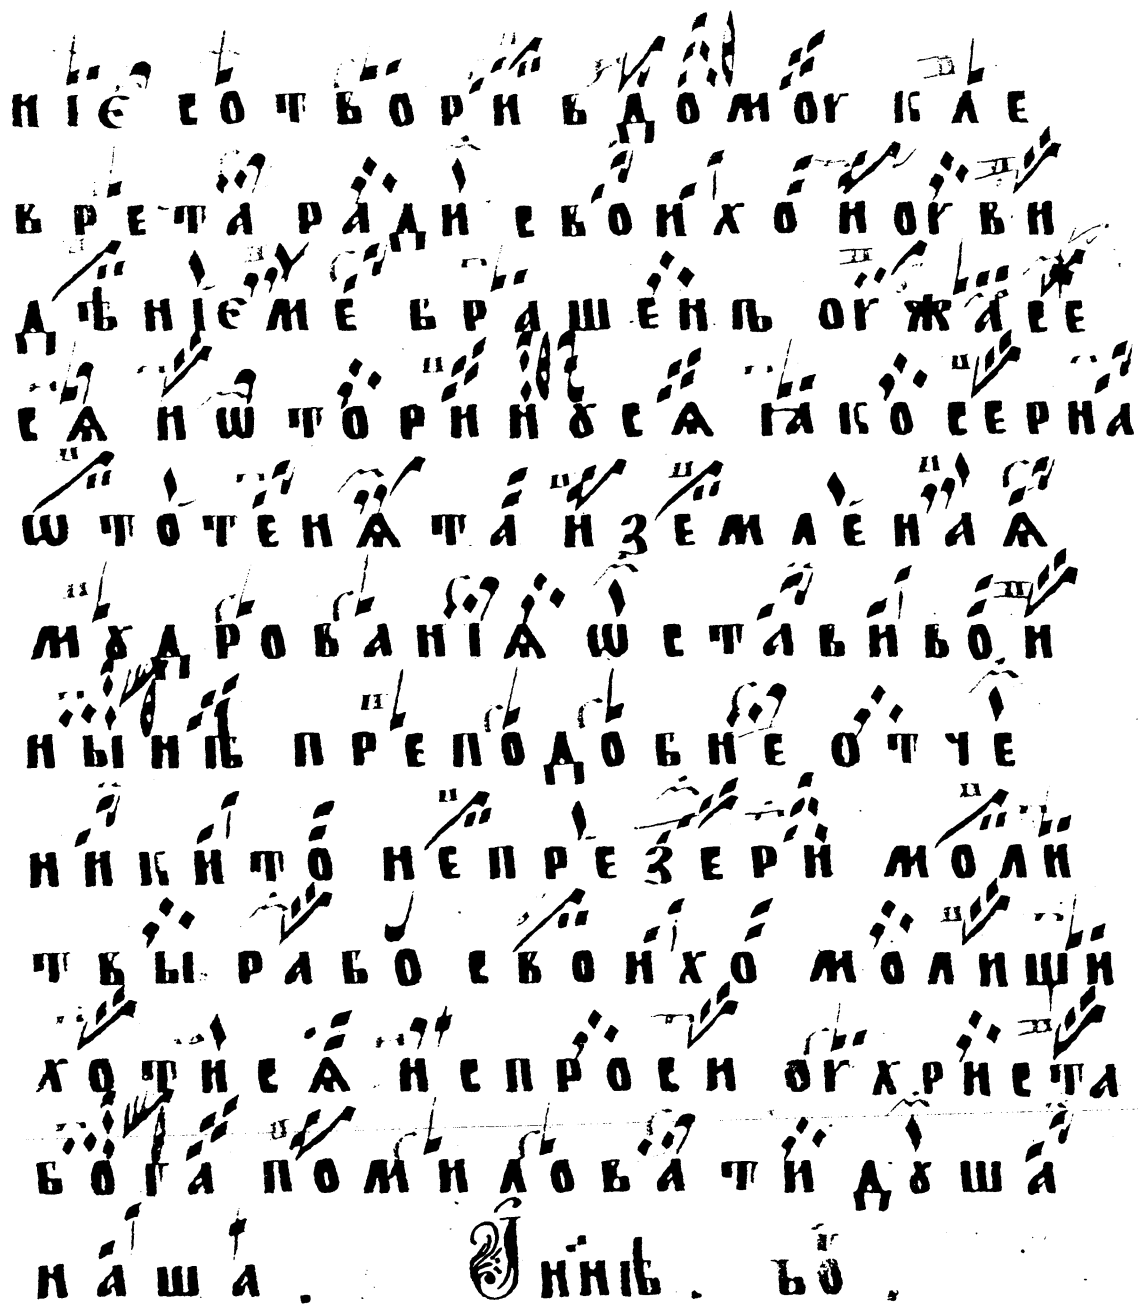 нїє сотвори в домоу кле
врета ради своихо и оу ви
дѣнїємъ брашенъ оужасе
сѧ и ѡторинꙋсѧ ꙗко серна
ѡто тенѧта и земленаѧ
мꙋдрованїѧ ѡставивои
нынѣ преподобне отче
никито не презери моли
твы рабо своихо молиши
хотисѧ и непроси оу христа
бога помиловати дꙋша
наша. И ннѣ. бо